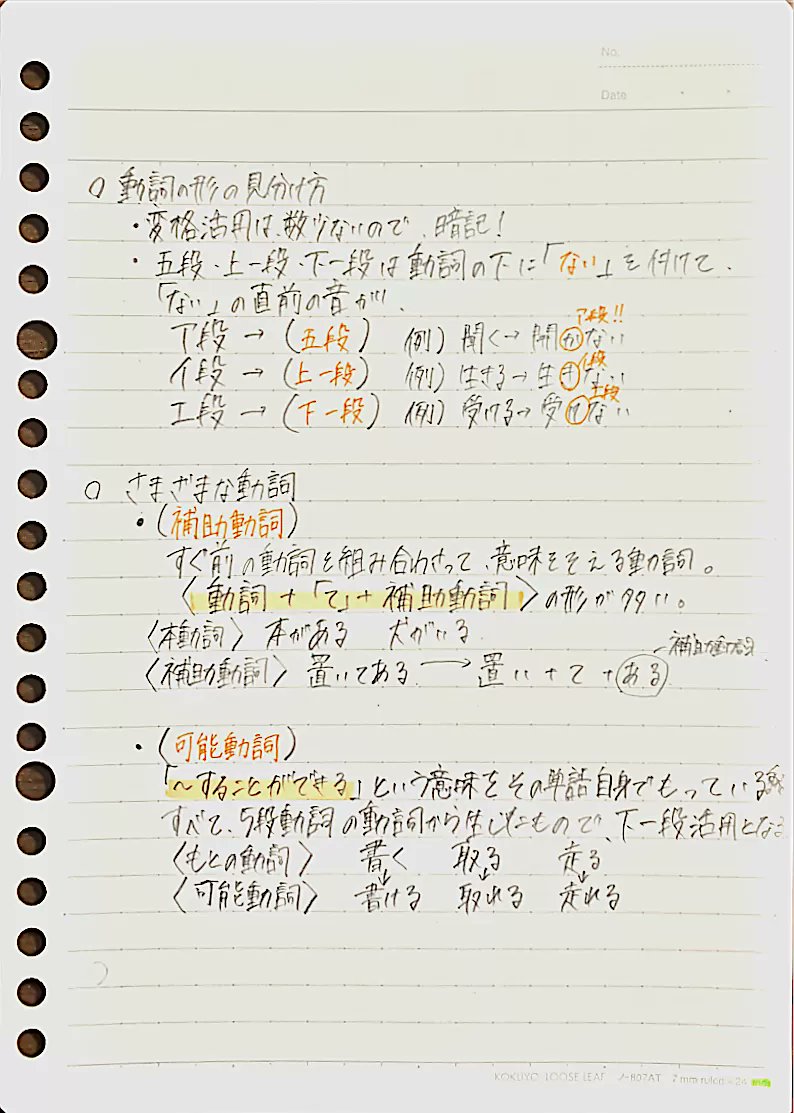 No.
Date
○ 動詞の形の見分け方
・変格活用は、数少ないので、暗記！
・五段・上一段・下一段は動詞の下に「ない」を付けて、
「ない」の直前の音が、
ア段 → (五段) 例) 聞く→ 聞かない ア段!!
イ段 → (上一段) 例) 生きる→ 生きない イ段
エ段 → (下一段) 例) 受ける→ 受けない エ段
○ さまざまな動詞
・(補助動詞)
すぐ前の動詞を組み合わさって、意味をそえる動詞。
〈動詞 + 「て」+ 補助動詞〉の形が多い。
〈本動詞〉 本がある 犬がいる
〈補助動詞〉 置いてある → 置い + て + ある 補助動詞
・(可能動詞)
「～することができる」という意味をその単語自身でもっている
すべて、5段動詞の動詞から生じたもので、下一段活用となる
〈もとの動詞〉 書く 取る 走る
↓ ↓ ↓
〈可能動詞〉 書ける 取れる 走れる
KOKUYO LOOSE-LEAF ノ-807AT 7 mm ruled × 24